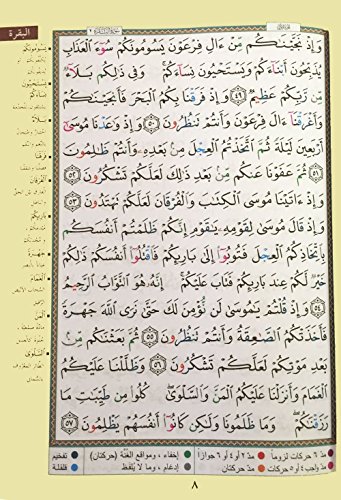 البقرة
وَإِذْ نَجَّيْنَٰكُم مِّنْ ءَالِ فِرْعَوْنَ يَسُومُونَكُمْ سُوٓءَ ٱلْعَذَابِ
يُذَبِّحُونَ أَبْنَآءَكُمْ وَيَسْتَحْيُونَ نِسَآءَكُمْ ۚ وَفِى ذَٰلِكُم بَلَآءٌ
مِّن رَّبِّكُمْ عَظِيمٌ ٤٩ وَإِذْ فَرَقْنَا بِكُمُ ٱلْبَحْرَ فَأَنجَيْنَٰكُمْ
وَأَغْرَقْنَآ ءَالَ فِرْعَوْنَ وَأَنتُمْ تَنظُرُونَ ٥٠ وَإِذْ وَٰعَدْنَا مُوسَىٰٓ
أَرْبَعِينَ لَيْلَةً ثُمَّ ٱتَّخَذْتُمُ ٱلْعِجْلَ مِنۢ بَعْدِهِۦ وَأَنتُمْ ظَٰلِمُونَ
٥١ ثُمَّ عَفَوْنَا عَنكُم مِّنۢ بَعْدِ ذَٰلِكَ لَعَلَّكُمْ تَشْكُرُونَ ٥٢
وَإِذْ ءَاتَيْنَا مُوسَى ٱلْكِتَٰبَ وَٱلْفُرْقَانَ لَعَلَّكُمْ تَهْتَدُونَ ٥٣
وَإِذْ قَالَ مُوسَىٰ لِقَوْمِهِۦ يَٰقَوْمِ إِنَّكُمْ ظَلَمْتُمْ أَنفُسَكُم
بِٱتِّخَاذِكُمُ ٱلْعِجْلَ فَتُوبُوٓا۟ إِلَىٰ بَارِئِكُمْ فَٱقْتُلُوٓا۟ أَنفُسَكُمْ ذَٰلِكُمْ
خَيْرٌ لَّكُمْ عِندَ بَارِئِكُمْ فَتَابَ عَلَيْكُمْ ۚ إِنَّهُۥ هُوَ ٱلتَّوَّابُ ٱلرَّحِيمُ
٥٤ وَإِذْ قُلْتُمْ يَٰمُوسَىٰ لَن نُّؤْمِنَ لَكَ حَتَّىٰ نَرَى ٱللَّهَ جَهْرَةً
فَأَخَذَتْكُمُ ٱلصَّٰعِقَةُ وَأَنتُمْ تَنظُرُونَ ٥٥ ثُمَّ بَعَثْنَٰكُم مِّنۢ
بَعْدِ مَوْتِكُمْ لَعَلَّكُمْ تَشْكُرُونَ ٥٦ وَظَلَّلْنَا عَلَيْكُمُ
ٱلْغَمَامَ وَأَنزَلْنَا عَلَيْكُمُ ٱلْمَنَّ وَٱلسَّلْوَىٰ ۖ كُلُوا۟ مِن طَيِّبَٰتِ مَا
رَزَقْنَٰكُمْ ۖ وَمَا ظَلَمُونَا وَلَٰكِن كَانُوٓا۟ أَنفُسَهُمْ يَظْلِمُونَ ٥٧
يَسُومُونَكُمْ
يَسْتَحْيُونَ
بَلَاءٌ
فَرَقْنَا
الْفُرْقَانَ
بَارِئِكُمْ
جَهْرَةً
الْغَمَامَ
الْمَنَّ
السَّلْوَى
مد ٦ حركات لزوماً مد ٢ أو ٤ أو ٦ جوازاً إخفاء، ومواقع الغُنَّة (حركتان) تفخيم
مد واجب ٤ أو ٥ حركات مد حركتان إدغام، وما لا يُلفَظ قلقلة
٨